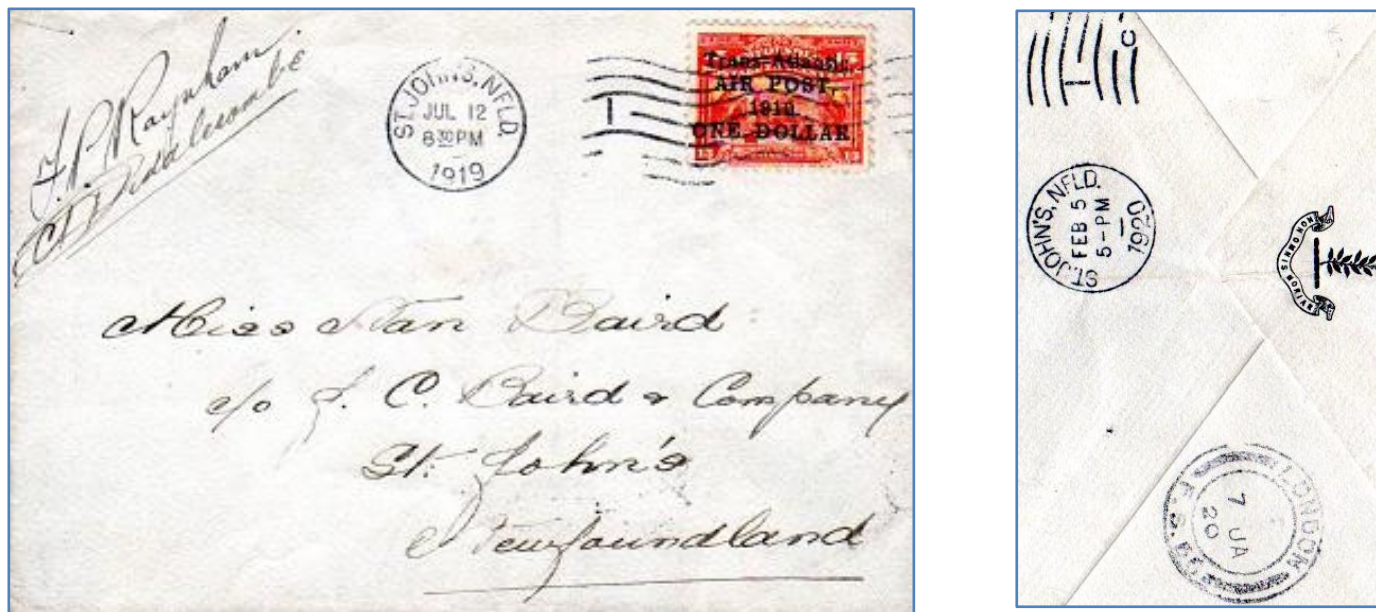 F.P. Raynham.
ST. JOHN'S, NFLD.
JUL 12
8 30 PM
1919
Trans-Atlantic
AIR POST,
1919.
ONE DOLLAR
15 15
Miss Nan Baird
c/o J. C. Baird & Company
St. John's
Newfoundland
ST. JOHN'S, NFLD.
FEB 5
5 - PM
1920
LONDON
7 JA
20
F.S.